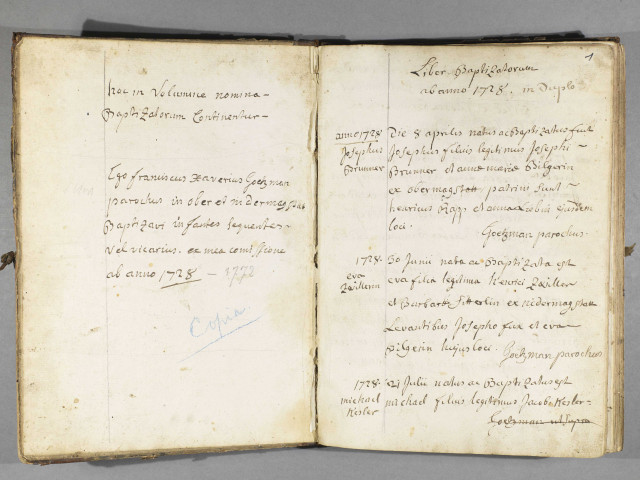 hoc in Volumine nomina
Baptizatorum Continentur
Ego franciscus Xaverius Goetzman
parochus in ober et nidermagstatt
Baptizavi infantes sequentes
vel vicarius ex mea comissione
ab anno 1728 - 1772
Copia
1
Liber Baptizatorum
ab anno 1728. in Duplo
anno 1728
Josephus
Brunner
Die 8 aprilis natus ac Baptizatus fuit
Josephus filius legitimus Josephi
Brunner et annæ mariæ Bilgerin
ex obermagstatt patrini sunt
henricus et anna eiusdem
loci. Goetzman parochus.
1728.
eva
30 Junii nata ac Baptizata est
eva filia legitima henrici
et Barbaræ ex nidermagstatt
Levantibus Josepho et eva
Bilgerin hujus loci. Goetzman parochus
1728.
michael
Kesler
24 Julii natus ac Baptizatus est
michael filius legitimus Jacobi Kesler
Goetzman ut supra